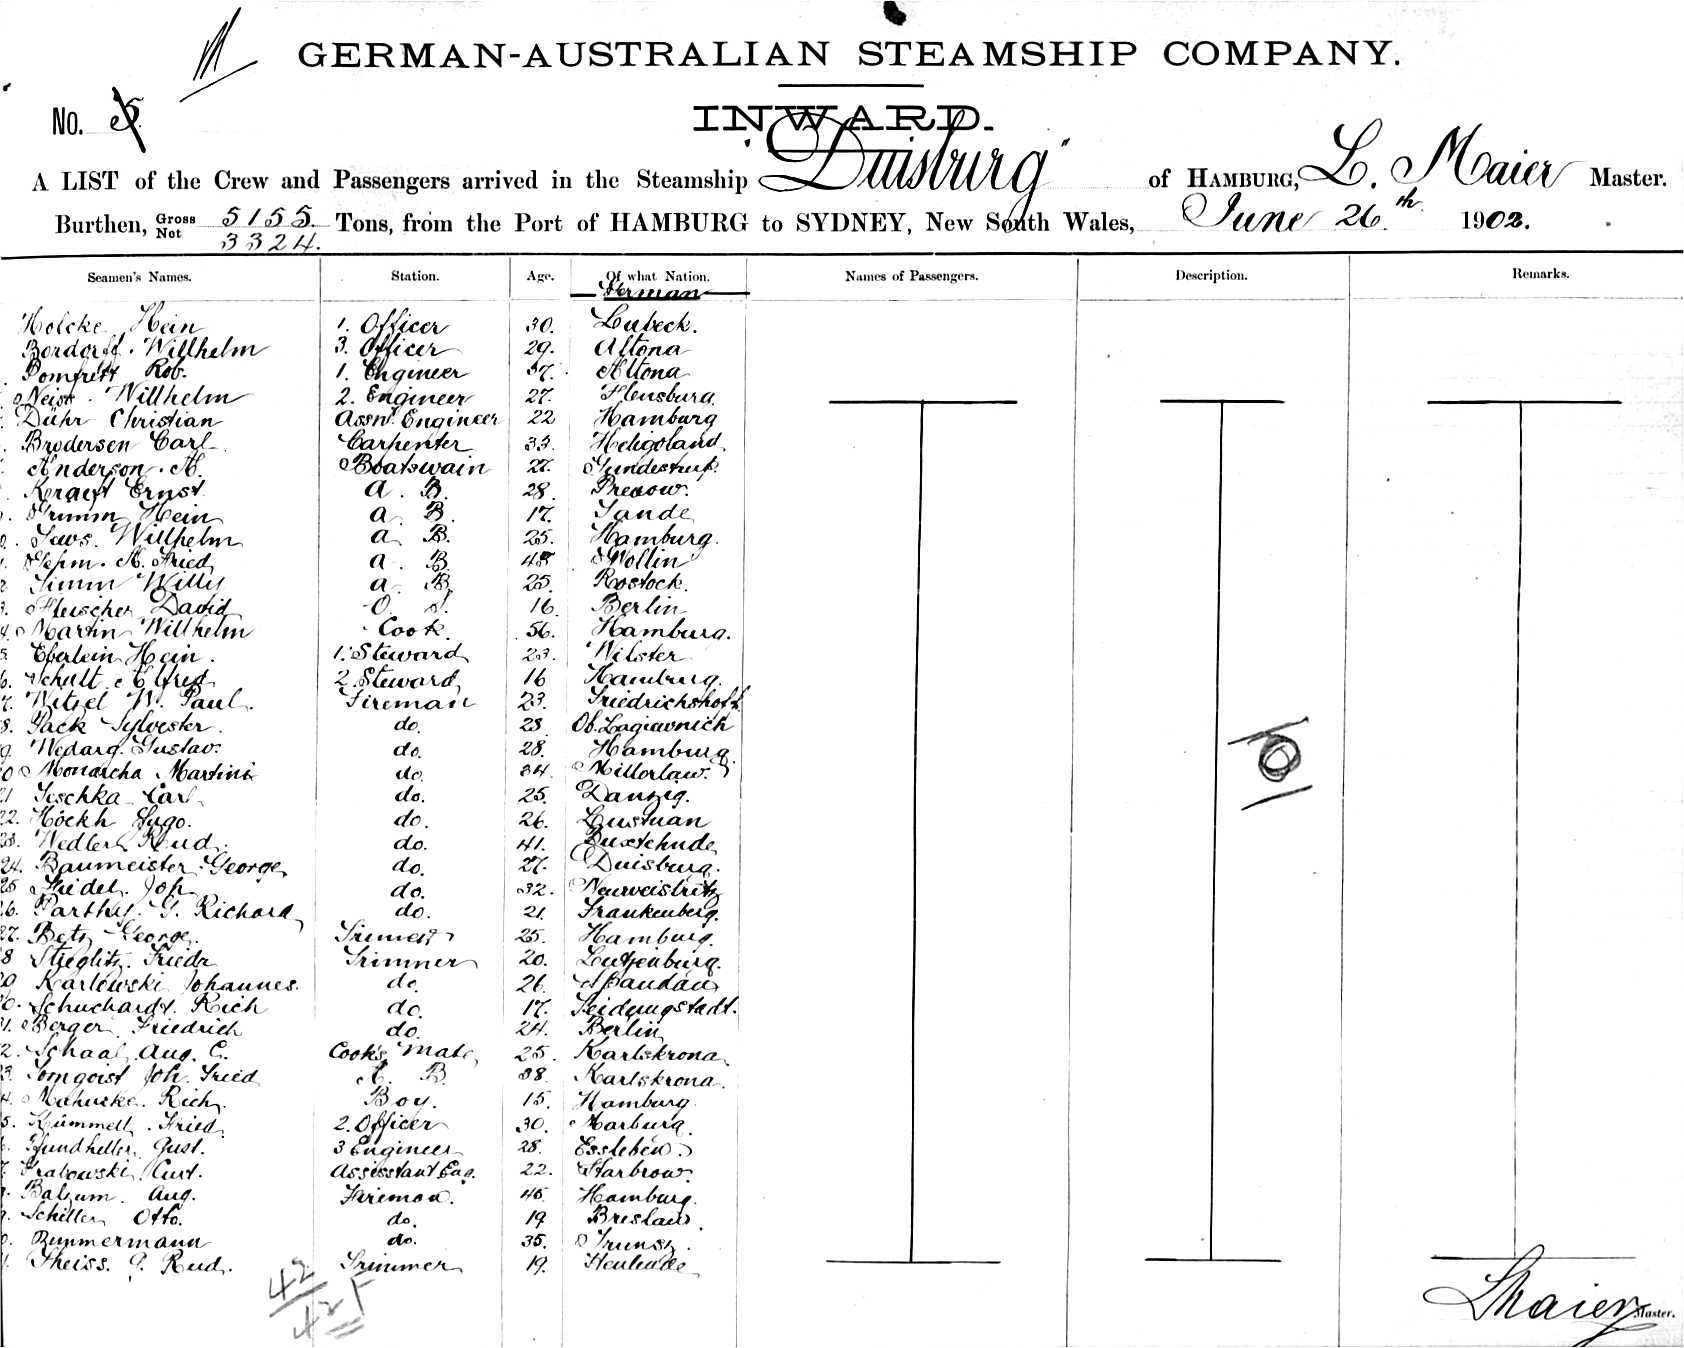 GERMAN-AUSTRALIAN STEAMSHIP COMPANY.
No.
INWARD.
A LIST of the Crew and Passengers arrived in the Steamship "Duisburg" of HAMBURG, L. Maier Master.
Burthen, Gross 5155. Tons, from the Port of HAMBURG to SYDNEY, New South Wales, June 26th 1902.
Not 3324.
Seamen's Names. Station. Age. Of what Nation. Names of Passengers. Description. Remarks.
German
Holcke Hein 1. Officer 30. Lubeck.
Bordorff. Willhelm 3. Officer 29. Altona
Pomfrett Rob. 1. Engineer 37. Altona
Neist. Willhelm 2. Engineer 27. Flensburg.
Dühr Christian Assnt. Engineer 22 Hamburg
Brodersen Carl Carpenter 33. Heligoland.
Anderson. A. Boatswain 27. Gundestrup.
Kraeft Ernst. A. B. 28. Prerow.
Grimm Hein a. B. 17. Sande
Saws. Willhelm a. B. 25. Hamburg.
A. Fried a. B. 48 Wollin
Timm Willy a. B. 25. Rostock.
Fleischer David O. S. 16. Berlin
Martin Willhelm Cook. 56. Hamburg.
Eberlein Hein. 1. Steward 23. Wilster
Schult Alfred 2. Steward 16 Hamburg.
Witzel W. Paul. Fireman 23. Friedrichshoff.
Pack Sylvester. do. 28 Ob. Lagiewnich
Wedarg. Gustav. do. 28. Hamburg.
20 Monarcha Martin do. 34.
21 Jeschka Carl do. 25. Danzig.
22. Höckh Hugo. do. 26. Lustnau
23. Wedler Rud. do. 41. Buxtehude
24. Baumeister George do. 27. Duisburg.
25 Seidel. Joh. do. 32. Neuweistritz
26. Parthey. G. Richard do. 21. Frankenberg.
27. Betz George. Trimmer 25. Hamburg.
28 Stieglitz. Friedr Trimmer 20. Lutjenburg.
29 Karlewski Johannes. do. 26. Spandau
30. Schuchardt. Rich do. 17. Seidingstadt.
31. Berger Friedrich do. 24. Berlin
2. Schaal Aug. C. Cook's Mate 25. Karlskrona
3. Tornqvist Joh. Fried A. B. 38. Karlskrona.
4. Mahuske. Rich. Boy. 15. Hamburg.
5. Kümmell. Fried. 2. Officer 30. Marburg.
Pfundheller Gust. 3 Engineer 28. Essleben.
Grabowski Curt. Assisstant Eng. 22. Starbrow.
Balzum. Aug. Fireman. 45. Hamburg.
Schiller Otto. do. 19 Breslau.
Zimmermann do. 35. Trunsz.
Theiss. P. Rud. Trimmer 19.
42
42 F
L Maier Master.